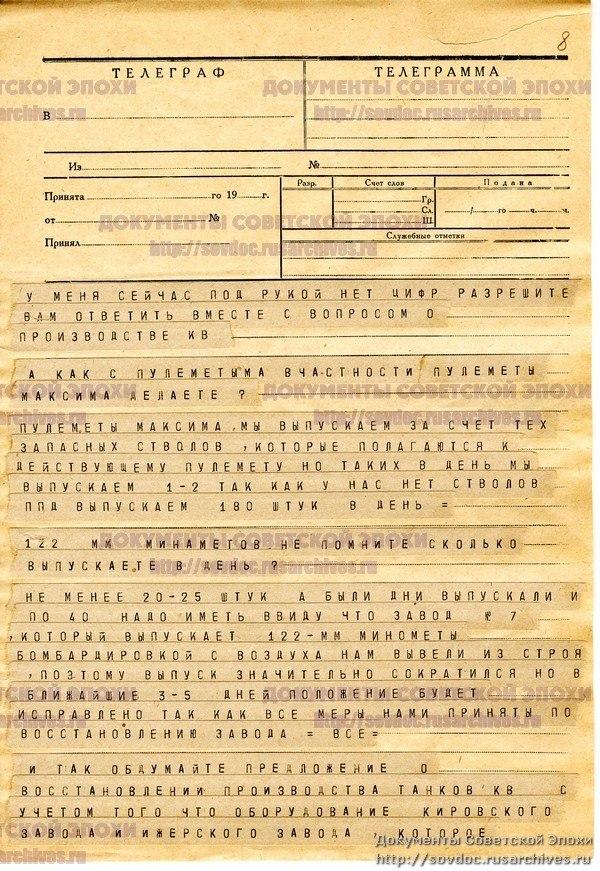 8
ТЕЛЕГРАФ
ТЕЛЕГРАММА
В
Из № 
Принята го 19 г.
от №
Принял
Разр. Счет слов Подана
Гр.
Сл. / го ч. м.
Ш.
Служебные отметки
У МЕНЯ СЕЙЧАС ПОД РУКОЙ НЕТ ЦИФР РАЗРЕШИТЕ
ВАМ ОТВЕТИТЬ ВМЕСТЕ С ВОПРОСОМ О
ПРОИЗВОДСТВЕ КВ
А КАК С ПУЛЕМЕТЫМА ВЧАСТНОСТИ ПУЛЕМЕТЫ
МАКСИМА ДЕЛАЕТЕ ?
ПУЛЕМЕТЫ МАКСИМА МЫ ВЫПУСКАЕМ ЗА СЧЕТ ТЕХ
ЗАПАСНЫХ СТВОЛОВ ,КОТОРЫЕ ПОЛАГАЮТСЯ К
ДЕЙСТВУЮЩЕМУ ПУЛЕМЕТУ НО ТАКИХ В ДЕНЬ МЫ
ВЫПУСКАЕМ 1-2 ТАК КАК У НАС НЕТ СТВОЛОВ
ППД ВЫПУСКАЕМ 180 ШТУК В ДЕНЬ =
122 ММ МИНАМЕТОВ НЕ ПОМНИТЕ СКОЛЬКО
ВЫПУСКАЕТЕ В ДЕНЬ ?
НЕ МЕНЕЕ 20-25 ШТУК А БЫЛИ ДНИ ВЫПУСКАЛИ И
ПО 40 НАДО ИМЕТЬ ВВИДУ ЧТО ЗАВОД № 7
,КОТОРЫЙ ВЫПУСКАЕТ 122-ММ МИНОМЕТЫ
БОМБАРДИРОВКОЙ С ВОЗДУХА НАМ ВЫВЕЛИ ИЗ СТРОЯ
,ПОЭТОМУ ВЫПУСК ЗНАЧИТЕЛЬНО СОКРАТИЛСЯ НО В
БЛИЖАЙШИЕ 3-5 ДНЕЙ ПОЛОЖЕНИЕ БУДЕТ
ИСПРАВЛЕНО ТАК КАК ВСЕ МЕРЫ НАМИ ПРИНЯТЫ ПО
ВОССТАНОВЛЕНИЮ ЗАВОДА = ВСЕ=
И ТАК ОБДУМАЙТЕ ПРЕДЛОЖЕНИЕ О
ВОССТАНОВЛЕНИИ ПРОИЗВОДСТВА ТАНКОВ КВ С
УЧЕТОМ ТОГО ЧТО ОБОРУДОВАНИЕ КИРОВСКОГО
ЗАВОДА И ИЖЕРСКОГО ЗАВОДА , КОТОРОЕ
Документы Советской Эпохи
http://sovdoc.rusarchives.ru